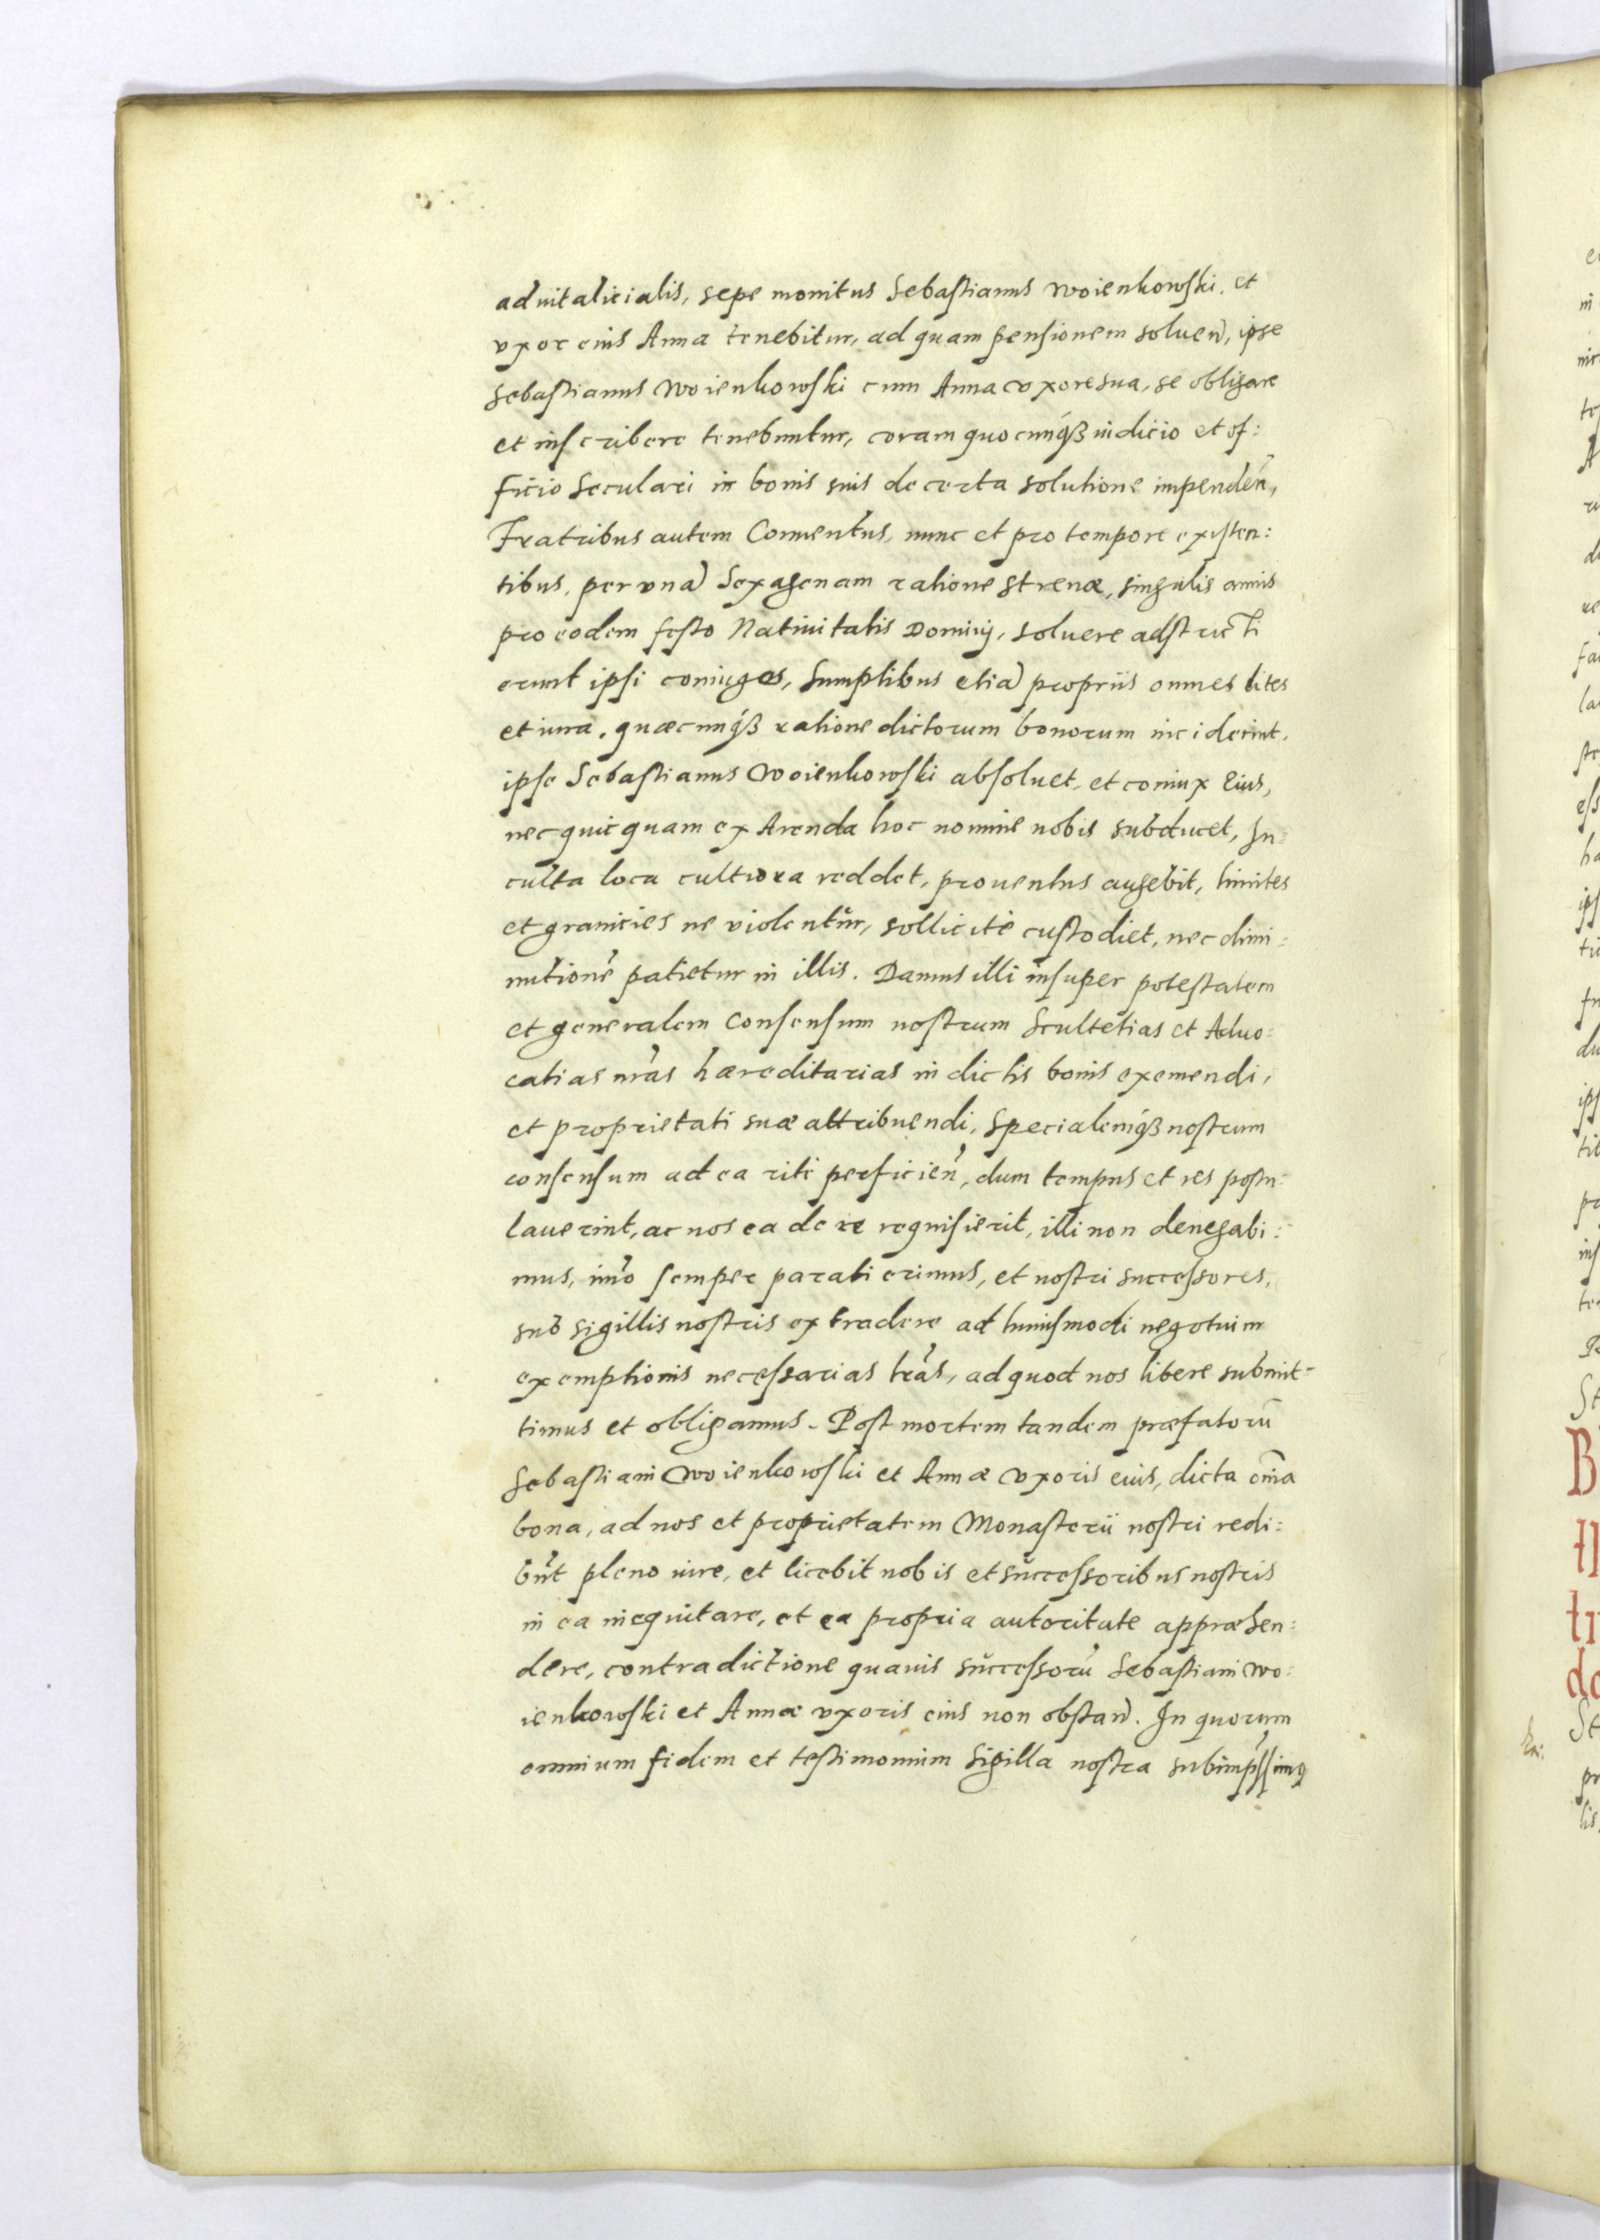 aduitalicialis, sepe monitus Sebastianus Woienkowski, et
vxor eius Anna tenebitur, ad quam pensionem soluen̄, ipse
Sebastianus Woienkowski cum Anna vxore sua, se obligare
et inscribere tenebuntur, coram quocunq́ꝫ iudicio et of:
ficio Seculari in bonis suis de certa solutione impenden̄,
Fratribus autem Conuentus, nunc et pro tempore existen:
tibus, per vnā Sexagenam ratione strenæ, singulis annis
pro eodem festo Natiuitatis Dominj, soluere adstricti
erunt ipsi coniuges, Sumptibus etiā propriis omnes lites
et iura, quæcunq́ꝫ ratione dictorum bonorum inciderint,
ipse Sebastianus Woienkowski absoluet, et coniux eius,
nec quicquam ex Arenda hoc nomine nobis subducet, In:
culta loca cultiora reddet, prouentus augebit, limites
et granicies ne violentur, sollicitè custodiet, nec dimi:
nutionē patietur in illis. Damus illi insuper potestatem
et generalem consensum nostrum Scultetias et Aduo:
catias nr̄as hæreditarias in dictis bonis exemendi,
et proprietati suæ attribuendi, Specialemq́ꝫ nostrum
consensum ad ea ritè perficien̄, dum tempus et res postu:
lauerint, ac nos ea de re requisierit, illi non denegabi:
mus, imo semper parati erimus, et nostri successores,
sub sigillis nostris extradere ad huiusmodi negotium
exemptionis necessarias lr̄as, ad quod nos libere submit-
timus et obligamus. Post mortem tandem præfatorū
Sebastiani Woienkowski et Annæ vxoris eius, dicta om̄ia
bona, ad nos et proprietatem Monasterii nostri redi:
bunt pleno iure, et licebit nobis et successoribus nostris
in ea inequitare, et ea propria autoritate appræhen:
dere, contradictione quauis successorū Sebastiani Wo:
ienkowski et Annæ vxoris eius non obstan̄. In quorum
omnium fidem et testimonium Sigilla nostra